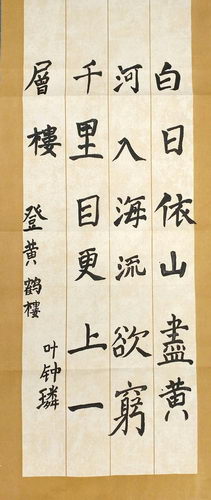 白日依山盡黄
河入海流欲窮
千里目更上一
層樓 登黄鶴樓
叶钟璘